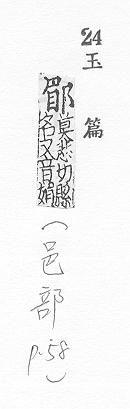 24 玉篇
郿
莫悲切縣
名又音媚
(邑部 p.58)